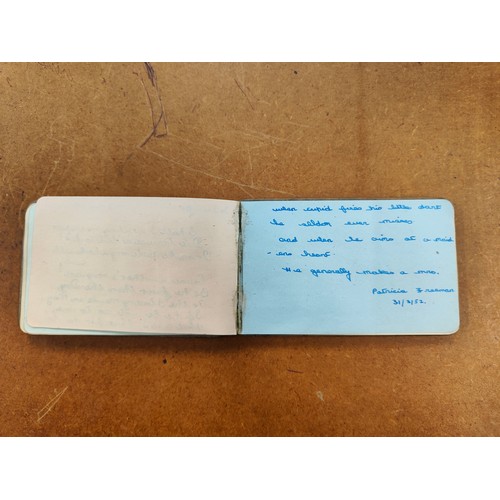 when cupid fires his little dart
he seldom ever misses
and when he aims at a maid
ens heart
He generally makes a mrs.
Patricia Freeman
31/3/52.